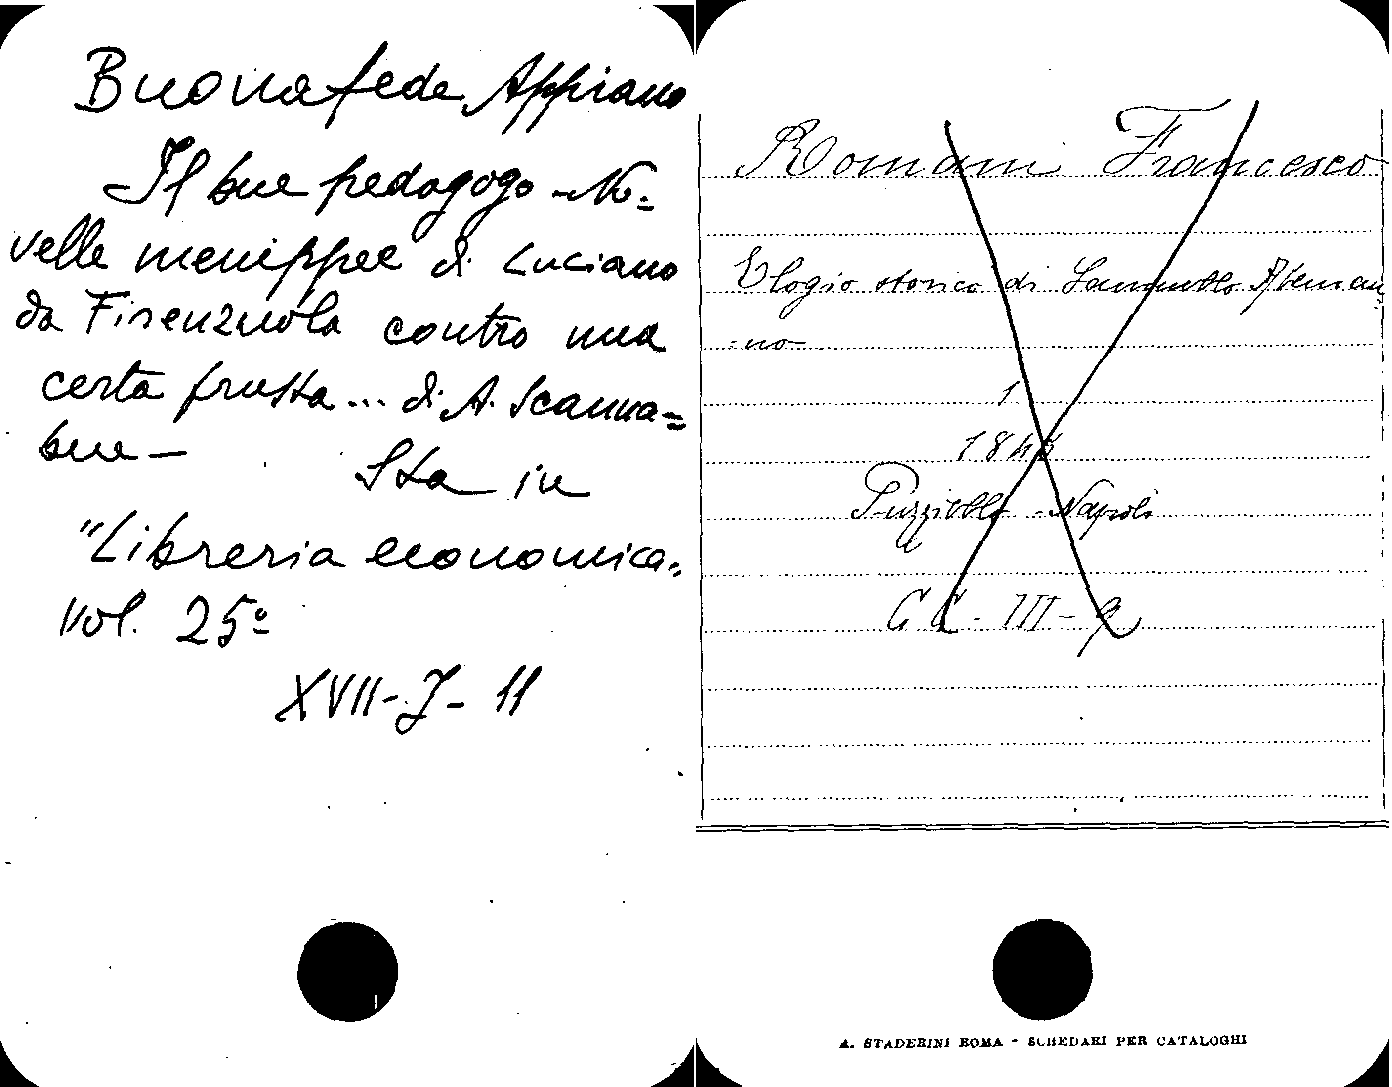 Buonafede Appiano
Il bue pedagogo - No=
velle menippee di Luciano
da Firenzuola contro una
certa frusta... di A. Scanna=
bue -
Sta in
"Libreria economica"
vol. 25º
XVII-J-11
Romani Francesco
Elogio storico di
=no
1
Puzziello - Napoli
CC - III - 9
A. STADERINI ROMA - SCHEDARI PER CATALOGHI